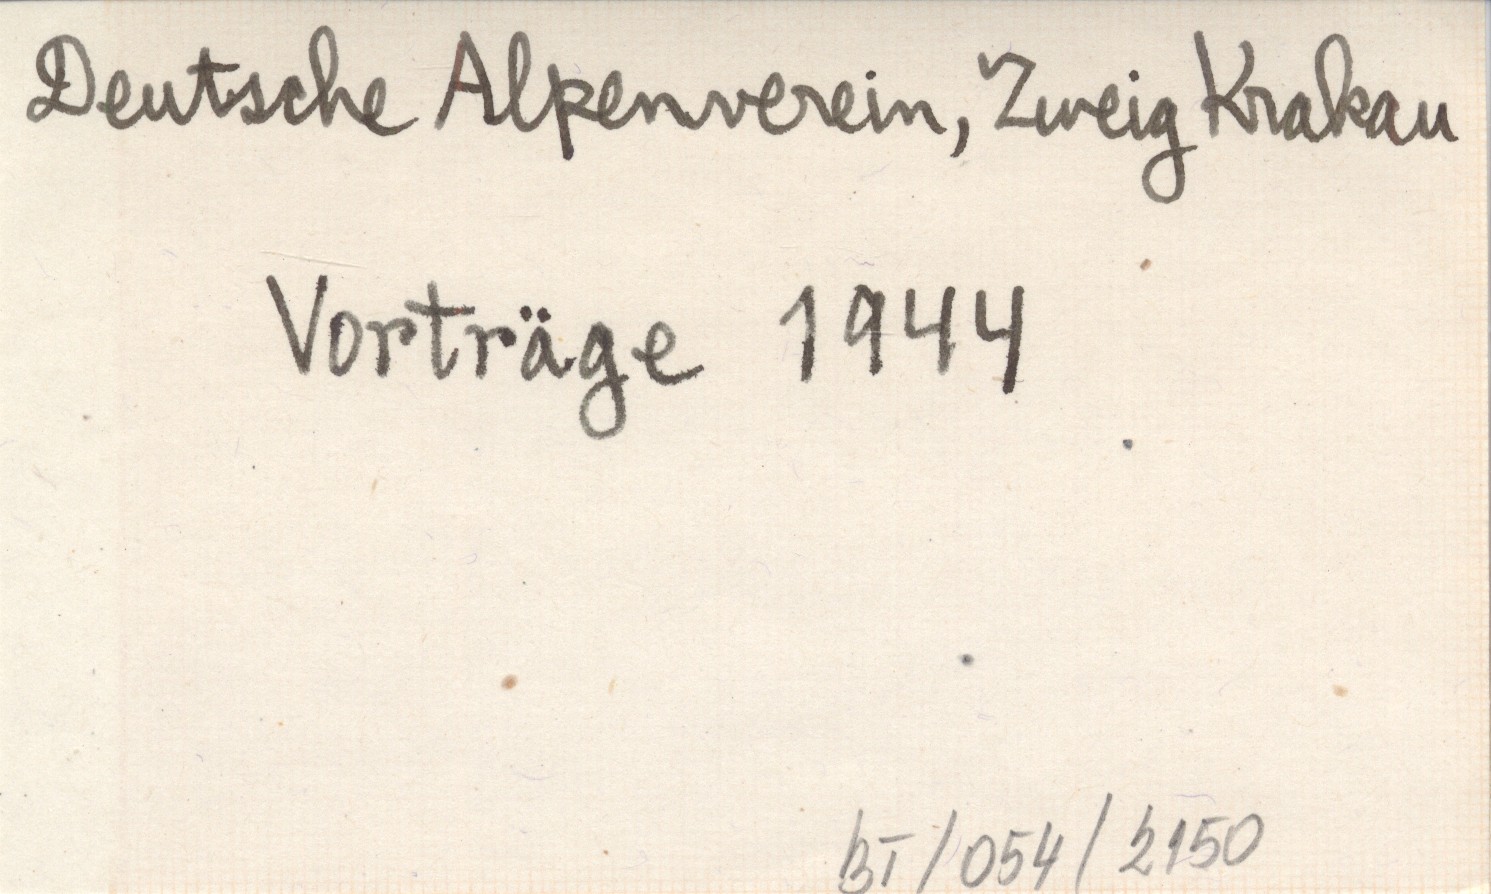 Deutsche Alpenverein, Zweig Krakau
Vorträge 1944
BT/054/2150